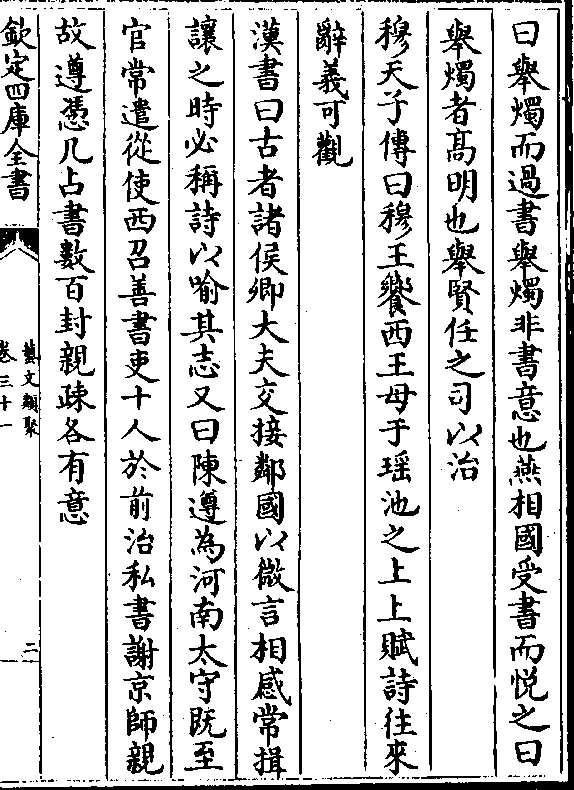 曰舉燭而過書舉燭非書意也燕相國受書而悦之曰
舉燭者髙明也舉賢任之司以治
穆天子傳曰穆王饗西王母于瑶池之上上賦詩往來
辭義可觀
漢書曰古者諸侯卿大夫交接鄰國以微言相感常揖
讓之時必稱詩以喻其志又曰陳遵為河南太守既至
官常遣從使西召善書吏十人於前治私書謝京師親
故遵憑几占書數百封親疎各有意
欽定四庫全書
藝文類聚
卷三十一
二